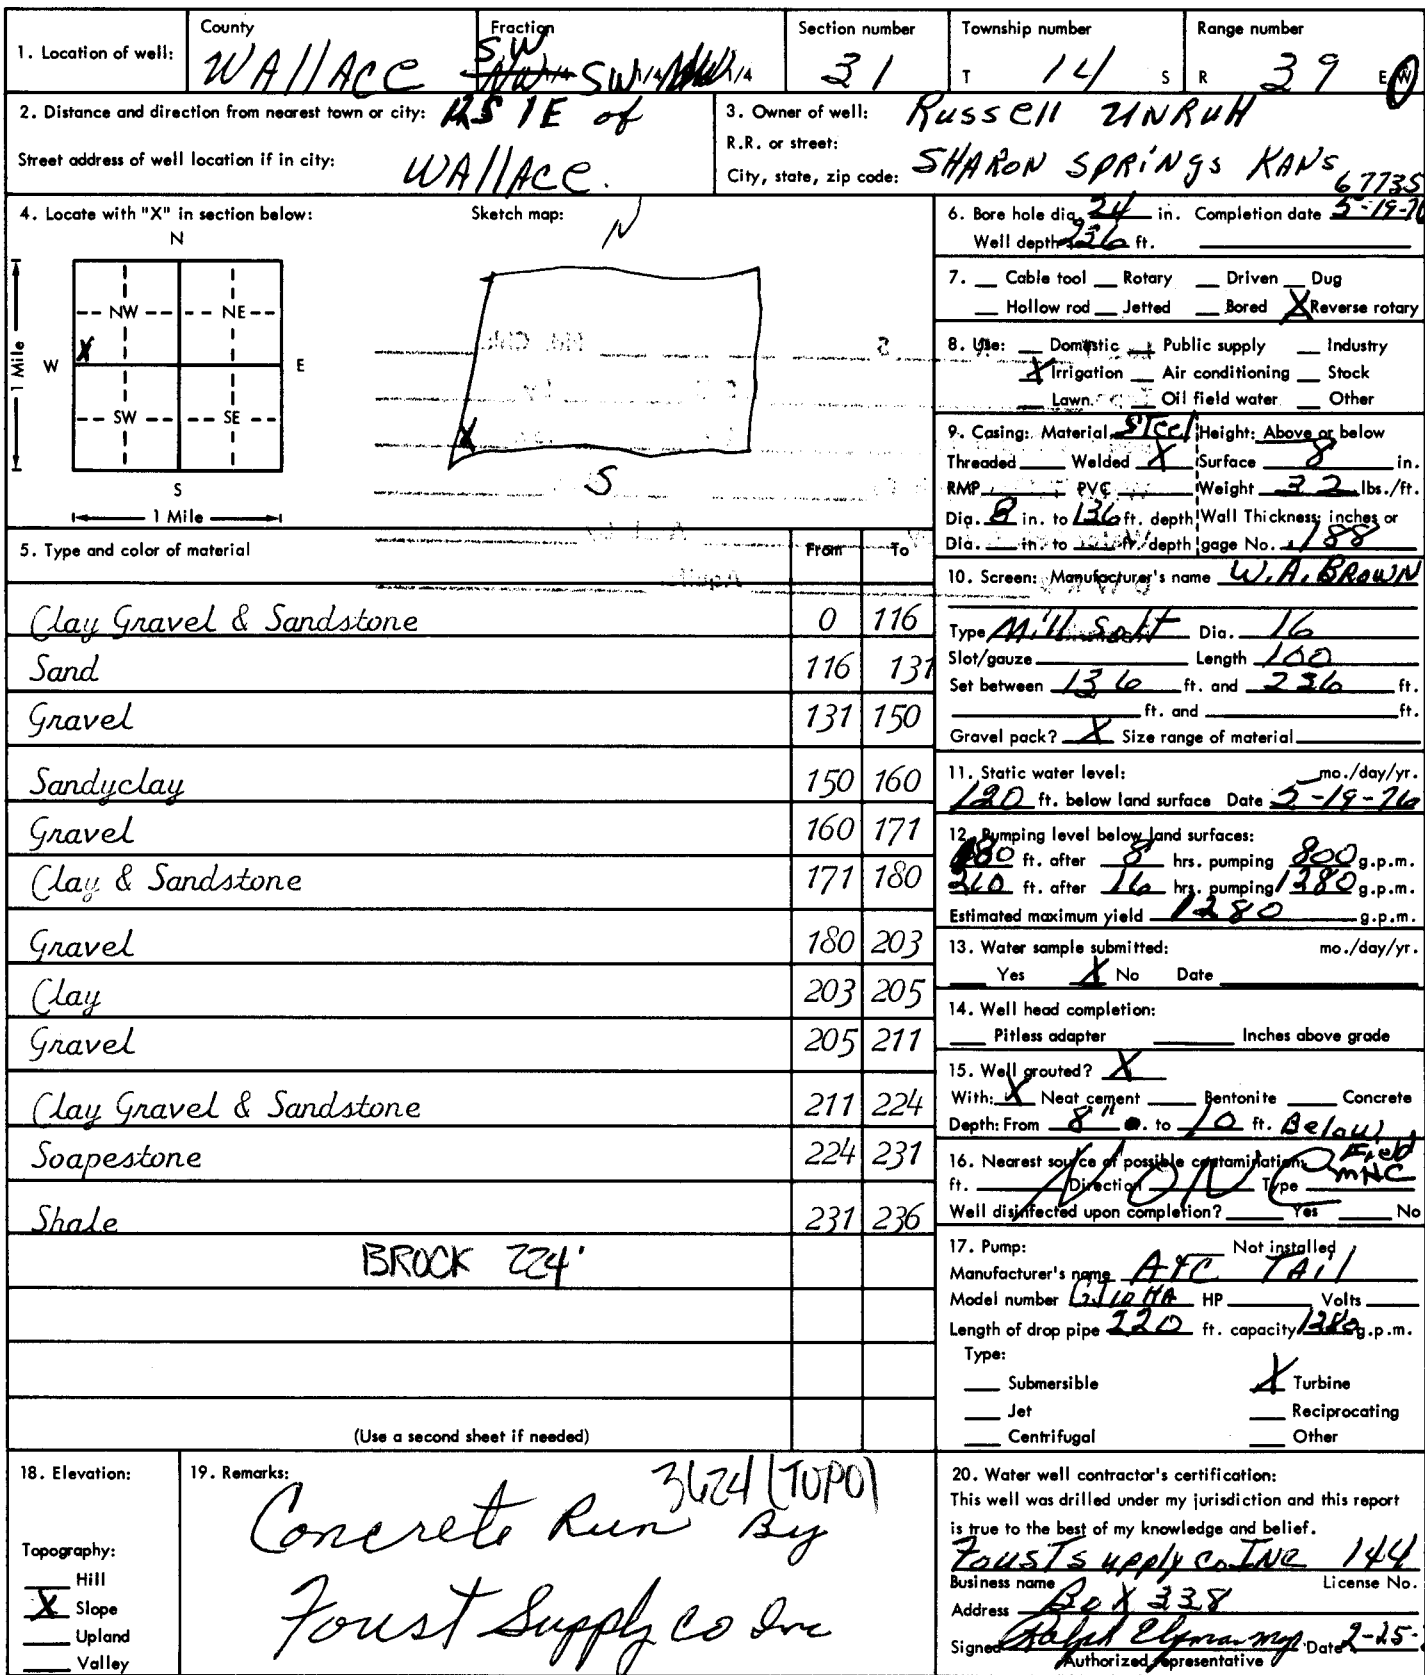 1. Location of well: County WAllAcE Fraction SW SW 1/4 1/4 Section number 31 Township number T 14 S Range number R 39 E W
2. Distance and direction from nearest town or city: 1E of
Street address of well location if in city: WAllAcE.
3. Owner of well: Russell UNRUH
R.R. or street:
City, state, zip code: SHARON SPRINGS KANS 67735
4. Locate with "X" in section below: Sketch map:
N
N
NW NE
X
W E
1 Mile
SW SE
X
S
S
1 Mile
5. Type and color of material From To
Clay Gravel & Sandstone 0 116
Sand 116 131
Gravel 131 150
Sandyclay 150 160
Gravel 160 171
Clay & Sandstone 171 180
Gravel 180 203
Clay 203 205
Gravel 205 211
Clay Gravel & Sandstone 211 224
Soapestone 224 231
Shale 231 236
BROCK 224'
(Use a second sheet if needed)
6. Bore hole dia. 24 in. Completion date 5-19-76
Well depth 236 ft.
7. Cable tool Rotary Driven Dug
Hollow rod Jetted Bored X Reverse rotary
8. Use: Domestic Public supply Industry
X Irrigation Air conditioning Stock
Lawn Oil field water Other
9. Casing: Material Steel Height: Above or below
Threaded Welded X Surface 8 in.
RMP PVC Weight 32 lbs./ft.
Dia. in. to 136 ft. depth Wall Thickness: inches or
Dia. in. to ft. depth gage No. .188
10. Screen: Manufacturer's name W.A. BROWN
Type Mill Solt Dia. 16
Slot/gauze Length 100
Set between 136 ft. and 236 ft.
ft. and ft.
Gravel pack? X Size range of material
11. Static water level: mo./day/yr.
120 ft. below land surface Date 5-19-76
12. Pumping level below land surfaces:
180 ft. after 8 hrs. pumping 800 g.p.m.
210 ft. after 16 hrs. pumping 1280 g.p.m.
Estimated maximum yield 1280 g.p.m.
13. Water sample submitted: mo./day/yr.
Yes X No Date
14. Well head completion:
Pitless adapter Inches above grade
15. Well grouted? X
With: X Neat cement Bentonite Concrete
Depth: From 8" to 10 ft. Below
16. Nearest source of possible contamination: NONE Field
ft. Direction Type MNC
Well disinfected upon completion? Yes No
17. Pump: Not installed
Manufacturer's name TAil
Model number HP Volts
Length of drop pipe 220 ft. capacity 1280 g.p.m.
Type:
Submersible X Turbine
Jet Reciprocating
Centrifugal Other
18. Elevation:
Topography:
Hill
X Slope
Upland
Valley
19. Remarks: 3624 (TOPO)
Concrete Run By
Foust Supply co Inc
20. Water well contractor's certification:
This well was drilled under my jurisdiction and this report
is true to the best of my knowledge and belief.
Foust Supply co. INC 144
Business name License No.
Address Box 338
Signed Ralph Date 2-25-
Authorized representative